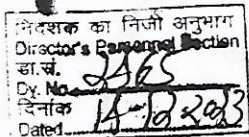 निदेशक का निजी अनुभाग
Director's Personnel Section
डा.सं.
Dy. No. 2465
दिनांक
Dated 14-12-2023